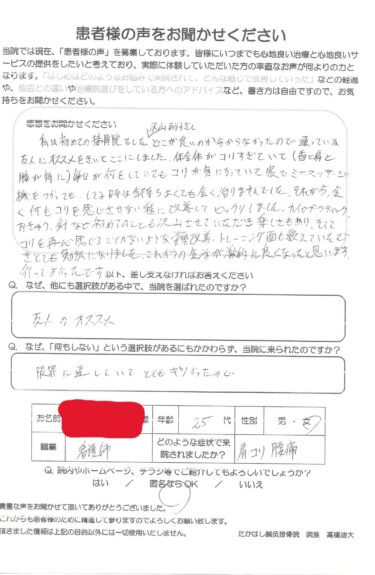 患者様の声をお聞かせください
当院では現在、「患者様の声」を募集しております。皆様にいつまでも心地良い治療と心地良いサー
ビスの提供をしたいと考えており、実際に体験していただいた方の率直なお声が何よりの力と
なります。「はじめはどのようなお悩みで来院されて、どんな感じで改善していった」などの経過
や、他店との違いや治療院選びをしている方へのアドバイスなど、書き方は自由ですので、お気
持ちをお聞かせください。
感想をお聞かせください
沢山ありすぎ
私は初めての接骨院でした どこが良いのか分からなかったので 通っている
友人にオススメをきいてここにしました。体全体がコリすぎていて(首と肩と
腰が特に)毎日が何をしていてもコリが気になっていて家でもマッサージ
機をつかっても してる時は気持ちよくても全く治りませんでした。それから、全
く何もコリを感じさせない程に改善してビックリしました。カイロプラクティック
お灸や、針など初めてのことも沢山させていただき楽しさもあり、そして
コリを再び感じることがないような
トレーニング面も教えていただ
きとても勉強になりました。これからの生活が劇的に良くなったと思います
行ってよかったです
以下、差し支えなければお答えください
Q. なぜ、他にも選択肢がある中で、当院を選ばれたのですか?
友人のオススメ
Q. なぜ、「何もしない」という選択肢があるにもかかわらず、当院に来られたのですか?
限界に達していて とても ギリだったので
お名前
年齢
25 代
性別
男・女
職業
看護師
どのような症状で来
院されましたか?
肩コリ 腰痛
Q. 院内やホームページ、チラシ等でご紹介してもよろしいでしょうか?
はい / 匿名ならOK / いいえ
貴重な声をお聞かせて頂いてありがとうございました。
これからも患者様のために精進して参りますのでよろしくお願い致します。
頂きました情報は上記の目的以外には一切使用いたしません。
たかはし鍼灸接骨院 院長 高橋迪大